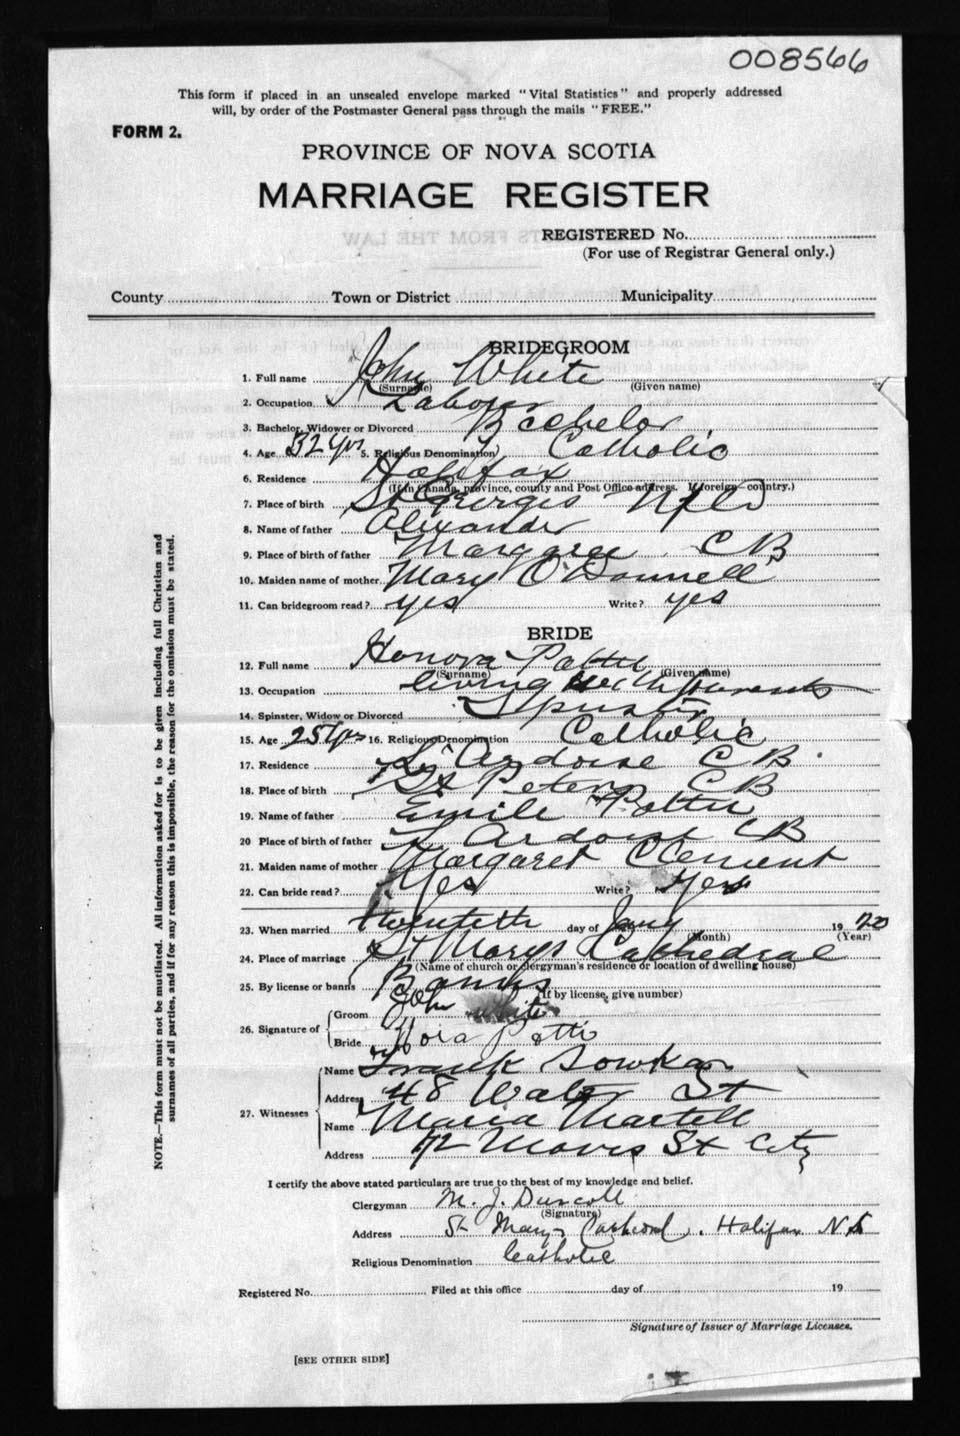 008566
This form if placed in an unsealed envelope marked "Vital Statistics" and properly addressed
will, by order of the Postmaster General pass through the mails "FREE."
FORM 2.
PROVINCE OF NOVA SCOTIA
MARRIAGE REGISTER
REGISTERED No.
(For use of Registrar General only.)
County Town or District Municipality
BRIDEGROOM
1. Full name John White
(Surname) (Given name)
2. Occupation Laborer
3. Bachelor, Widower or Divorced Bachelor
4. Age 32 yrs 5. Religious Denomination Catholic
6. Residence Halifax
(If in Canada, province, county and Post Office address. If foreign country.)
7. Place of birth St Georges Nfld
8. Name of father Alexander
9. Place of birth of father Margaree CB
10. Maiden name of mother Mary O'Donnell
11. Can bridegroom read? yes Write? yes
BRIDE
12. Full name Honora Pottie
(Surname) (Given name)
13. Occupation living with parents
14. Spinster, Widow or Divorced Spinster
15. Age 25 yrs 16. Religious Denomination Catholic
17. Residence L'Ardoise C B
18. Place of birth St Peters C B
19. Name of father Emile Pottie
20 Place of birth of father L'Ardoise CB
21. Maiden name of mother Margaret Clement
22. Can bride read? Yes Write? Yes
23. When married twentieth day of Jany 1920
(Month) (Year)
24. Place of marriage St Marys Cathedral
(Name of church or clergyman's residence or location of dwelling house)
25. By license or banns Banns
(If by license, give number)
26. Signature of Groom John White
Bride Nora Pottie
27. Witnesses Name Frank
Address 48 Water St
Name Maria Martell
Address 72 Morris St City
I certify the above stated particulars are true to the best of my knowledge and belief.
Clergyman M. J. Driscoll
(Signature)
Address St Marys Cathedral, Halifax N S
Religious Denomination Catholic
Registered No. Filed at this office day of 19
Signature of Issuer of Marriage Licenses.
[SEE OTHER SIDE]
NOTE.—This form must not be mutilated. All information asked for is to be given including full Christian and
surnames of all parties, and if for any reason this is impossible, the reason for the omission must be stated.